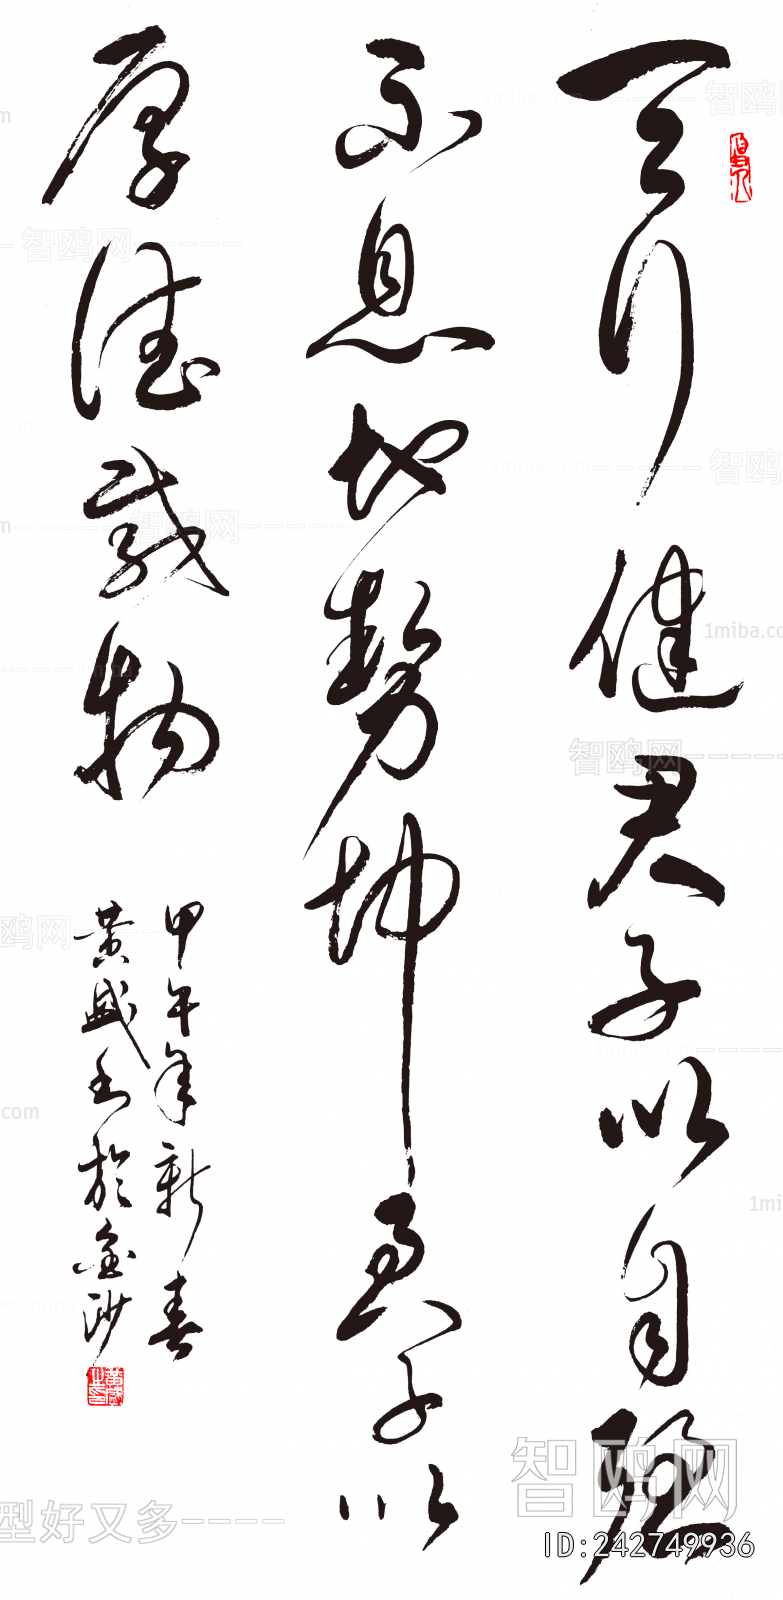 天行健君子以自强
不息地势坤君子以
厚德载物
甲午年新春
黄盛书於金沙
智鸥网
ID:242749936